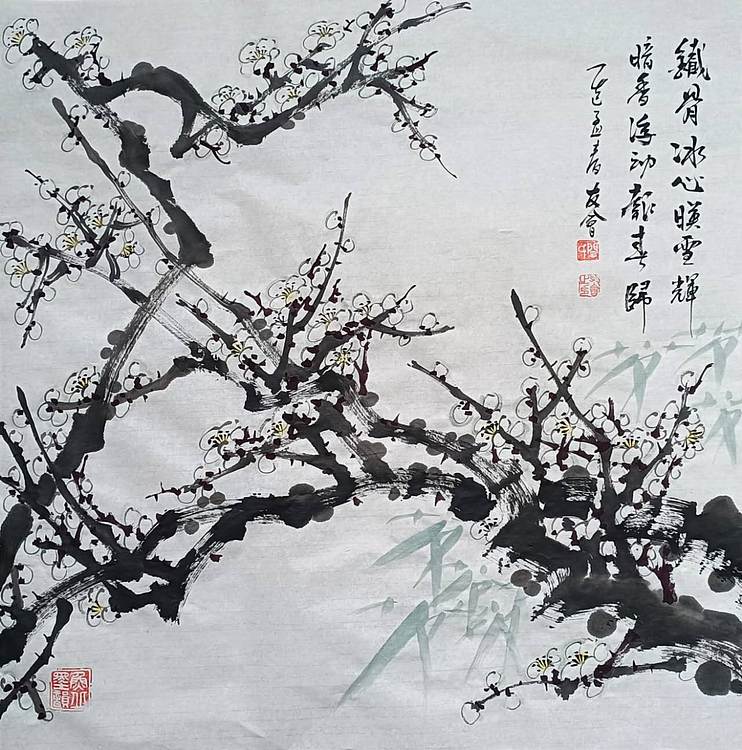 鐵骨冰心暎雪輝
暗香浮动獻春歸
乙巳孟春友會